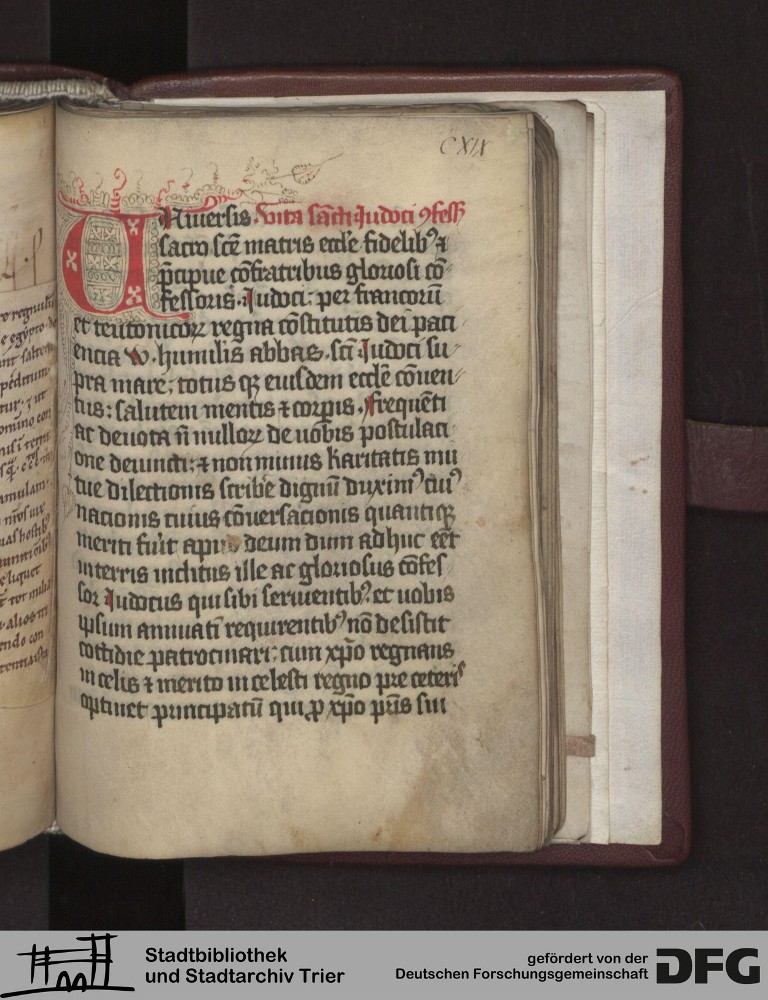 CXIX
Uniuersis. Vita sācti Iudoci ꝯfess
sacro scē matris eccle fidelibꝰ ⁊
p̄cipue cōfratribus gloriosi cō-
fessoris. Iudoci: per francorū
et teutonicoꝝ regna cōstitutis dei paci
encia w. humilis abbas. scī Iudoci su
pra mare; totus qꝫ eiusdem eccle cōuen
tus: salutem mentis ⁊ corpis. frequēti
ac deuota nullo ꝝ de uobis postulaci
one deuincti; ⁊ non minus karitatis mu
tue dilectionis scribe dignū duximꝰ cuiꝰ
nacionis cuius cōuersacionis quantiqꝫ
meriti fuit apud deum dum adhuc eēt
in terris inclitus ille ac gloriosus cōfes
sor Iudocus qui sibi seruientibꝰ. et uobis
ipsum requirentibꝰ nō desistit
cottidie patrocinari; cum xp̄o regnans
in celis ⁊ merito in celesti regno pre ceteris
optinet principatū qui ꝓ xp̄o p̄us sui
Stadtbibliothek
und Stadtarchiv Trier
gefördert von der
Deutschen Forschungsgemeinschaft
DFG